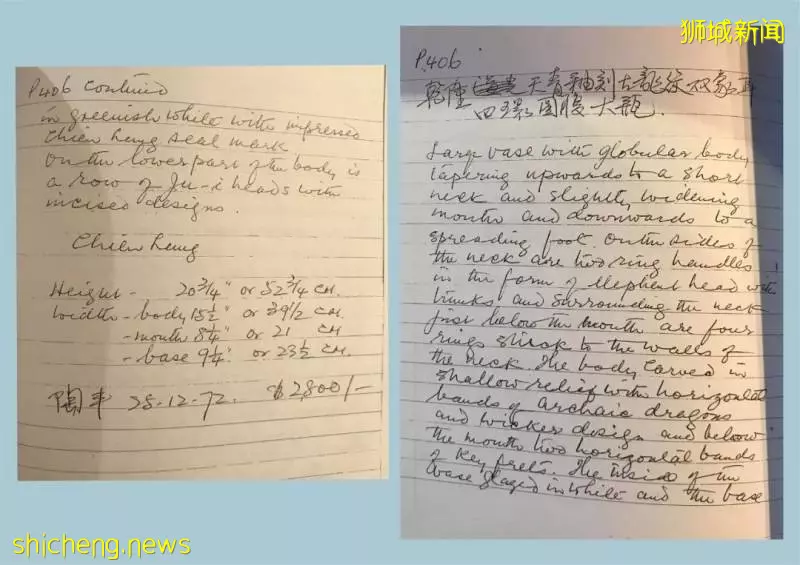 狮城新闻
P.406
乾隆 天青釉刻古龍紋双象耳
四環圓腹大瓶.
Large vase with globular body
tapering upwards to a short
neck and slightly widening
mouth and downwards to a
spreading foot. On the sides of
the neck are two ring handles
in the form of elephant head with
trunks and surrounding the neck
just below the mouth are four
rings stuck to the walls of
the neck. The body carved in
shallow relief with horizontal
bands of archaic dragons
and wicker design and below
the mouth two horizontal bands
of key frets. The inside of the
vase glazed in white and the base
P.406 Continued
in greenish white with impressed
Chien Lung seal mark
On the lower part of the body is
a row of Ju-i heads with
incised designs.
Chien Lung
Height - 20 3/4" or 52 3/4 CM.
Width - body 15 1/2" or 39 1/2 CM.
- mouth 8 1/4" or 21 CM
- base 9 1/4" or 23 1/2 CM.
陶 25.12.72. $2,800/-
shicheng.news